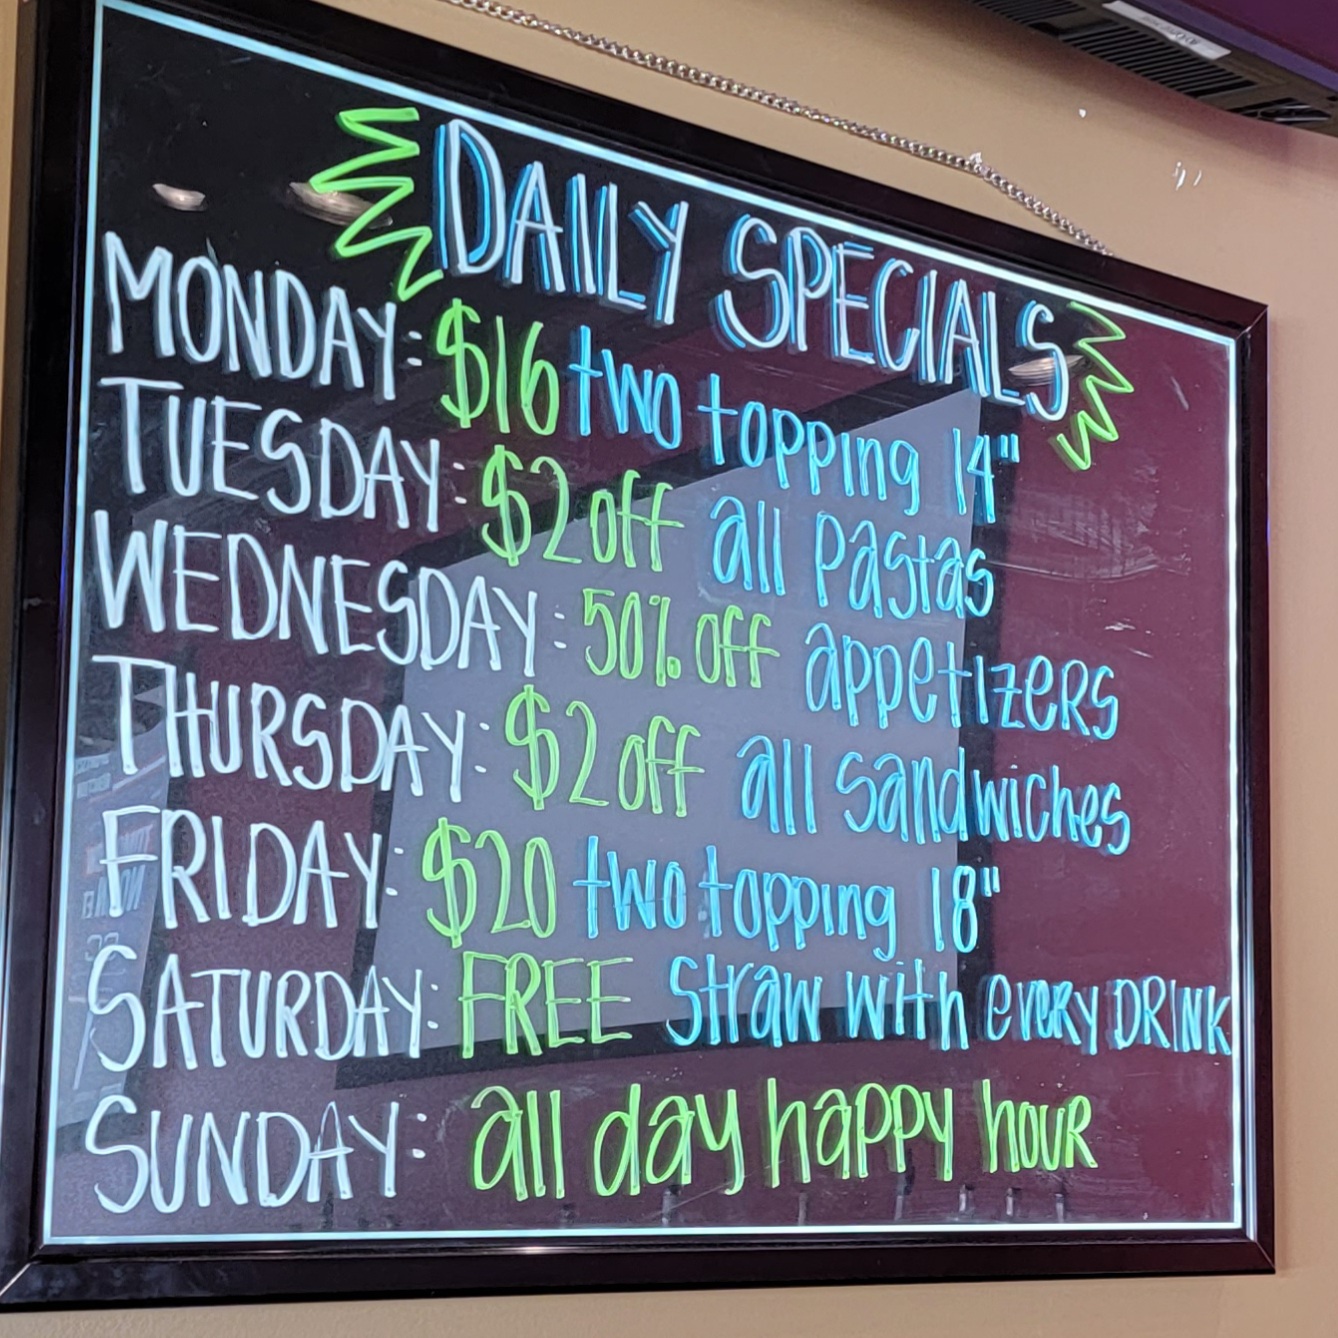 DAILY SPECIALS
MONDAY: $16 two topping 14"
TUESDAY: $2 off all pastas
WEDNESDAY: 50% off appetizers
THURSDAY: $2 off all sandwiches
FRIDAY: $20 two topping 18"
SATURDAY: FREE straw with every DRINK
SUNDAY: all day happy hour